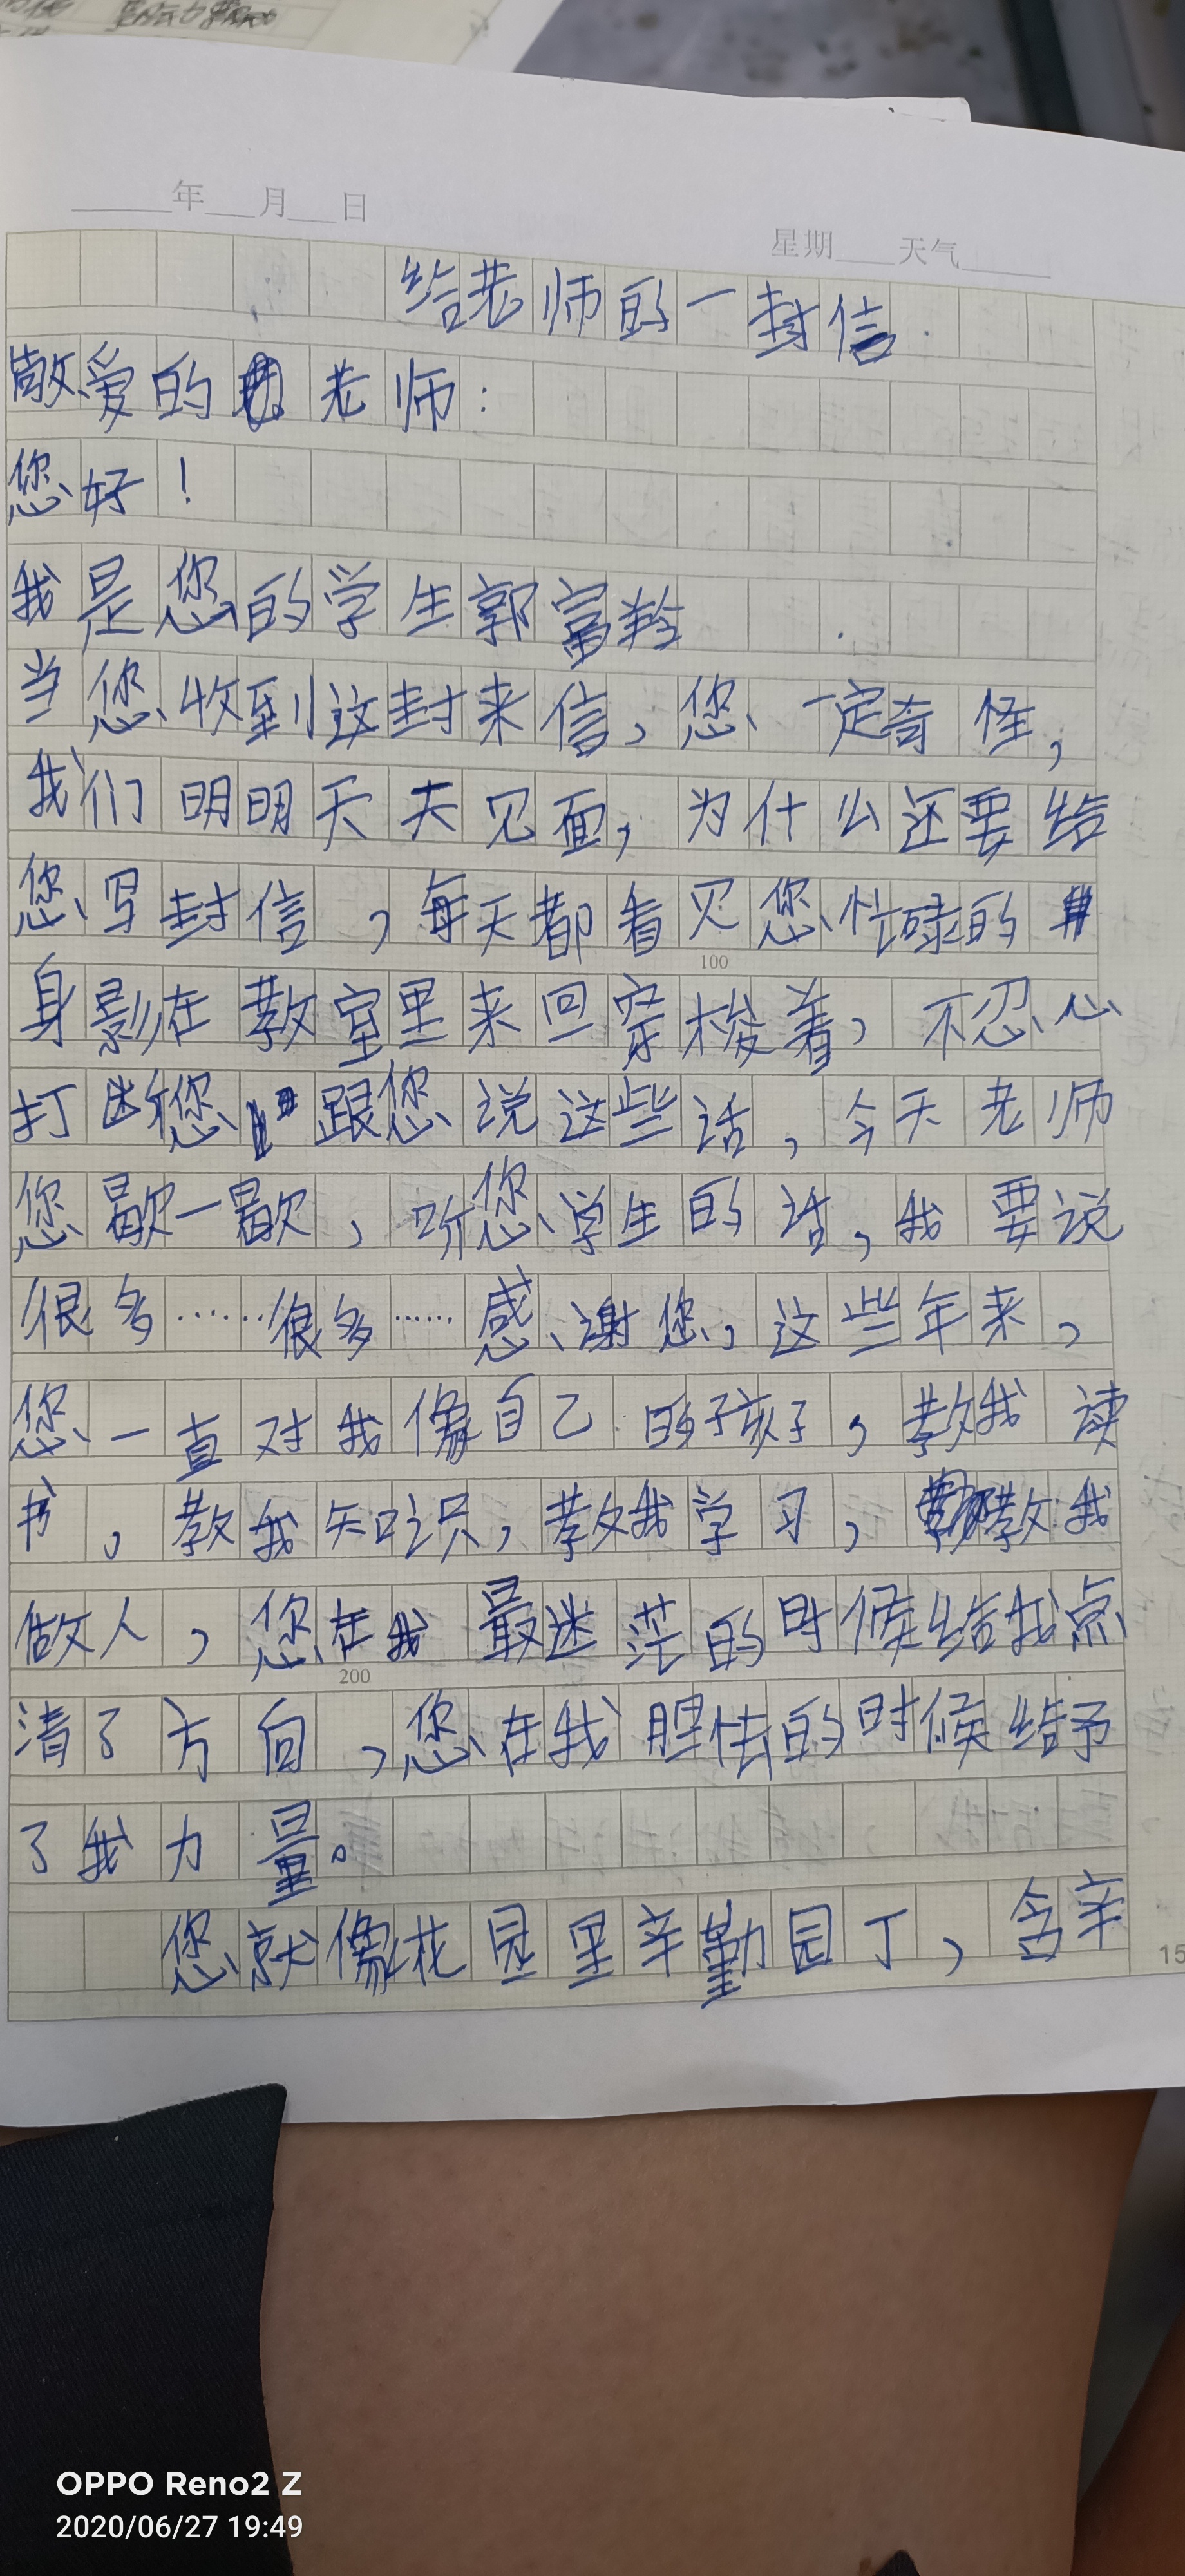 年 月 日
星期 天气
给老师的一封信
敬爱的老师：
您好！
我是您的学生郭富羚
当您收到这封来信，您一定奇怪，
我们明明天天见面，为什么还要给
您写封信，每天都看见您忙碌的
100
身影在教室里来回穿梭着，不忍心
打断您跟您说这些话，今天老师
您歇一歇，听您学生的话，我要说
很多……很多……感谢您，这些年来，
您一直对我像自己的孩子，教我读
书，教我知识，教我学习，教我
做人，您在我最迷茫的时候给我点
200
清了方向，您在我胆怯的时候给予
了我力量。
您就像花园里辛勤园丁，含辛
15
OPPO Reno2 Z
2020/06/27 19:49